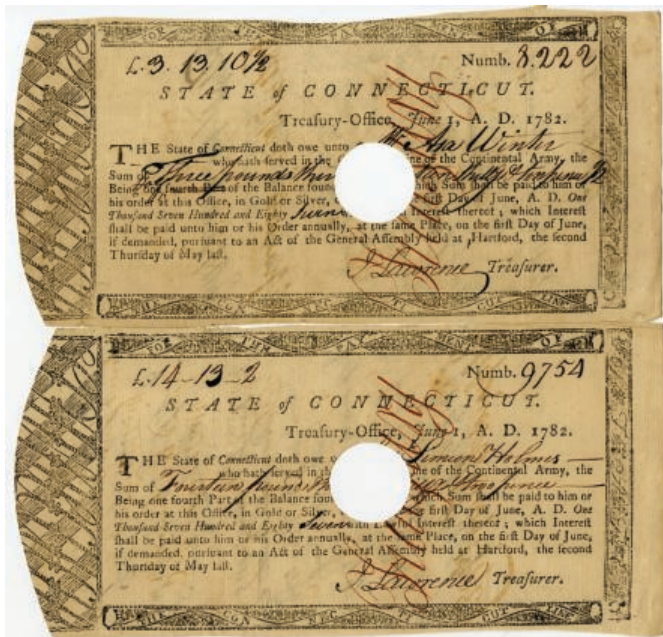 FOR THE PAY MENT OF
£.3. 13. 10½ Numb. 8.222
STATE of CONNECTICUT.
Treasury-Office, June 1, A. D. 1782.
THE State of Connecticut doth owe unto Asa Winter
who hath served in the Line of the Continental Army, the
Sum of Three pounds
Being one fourth Part of the Balance foun which Sum shall be paid to him or
his order at this Office, in Gold or Silver, first Day of June, A. D. One
Thousand Seven Hundred and Eighty Interest thereof; which Interest
shall be paid unto him or his Order annually, at the same Place, on the first Day of June,
if demanded, pursuant to an Act of the General Assembly held at Hartford, the second
Thursday of May last.
J Lawrence Treasurer.
CON NEC TI CUT LINE
FOR THE PAY MENT OF
£.14-13-2 Numb. 9754
STATE of CONNECTICUT.
Treasury-Office, June 1, A. D. 1782.
THE State of Connecticut doth owe Simeon Holmes
who hath served in the Line of the Continental Army, the
Sum of Fourteen pounds
Being one fourth Part of the Balance foun which Sum shall be paid to him or
his order at this Office, in Gold or Silver, first Day of June, A. D. One
Thousand Seven Hundred and Eighty Seven with Lawful Interest thereof; which Interest
shall be paid unto him or his Order annually, at the same Place, on the first Day of June,
if demanded, pursuant to an Act of the General Assembly held at Hartford, the second
Thursday of May last.
J Lawrence Treasurer.
CON NEC TI CUT LINE